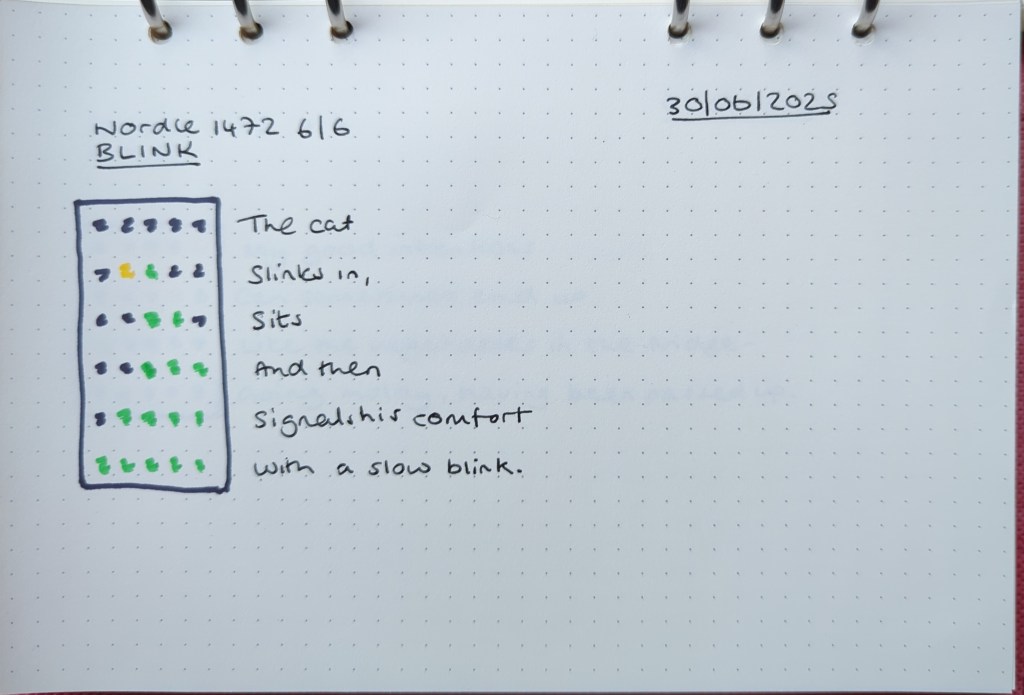 30/06/2025
Wordle 1472 6/6
BLINK
The cat
Slinks in,
Sits
And then
Signals his comfort
with a slow blink.